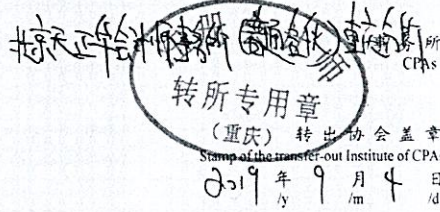 北京天正华会计师事务所（普通合伙）重庆分所 所
CPAs
师
转所专用章
（重庆） 转出协会盖章
Stamp of the transfer-out Institute of CPA
2019 年 9 月 4 日
/y /m /d